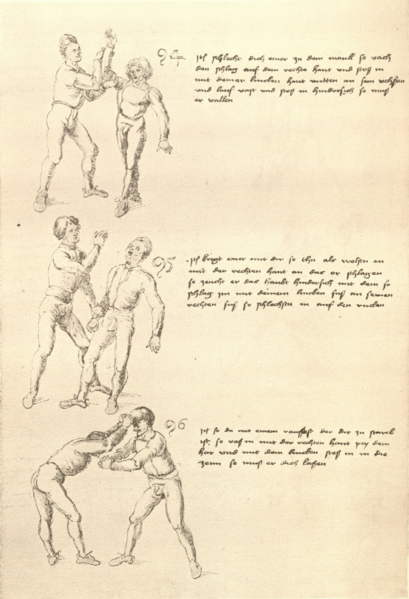 94
Jtem schlecht dich einer zu dem maul so vach
den schlag auf dein rechte hant vnd stos in
mit deiner lincken hant vntten an sein
vnd lauf vast vnd stos in hindersich so mus
er vallen
95
Jtem kriegt einer mit dir so thu als wolstu in
mit der rechten hant an das or schlagen
so zeucht er das haubt hindersich mit dem so
schlag im mit deinem lincken fuß an seinen
rechten fuß so schlechstu in auf den rucken
96
Jtem so du mit einem raufest der dir zu starck
ist, so vas in mit der rechten hant pey dem
har vnd mit dem lincken stos in in die
zenn so mus er dich lassen